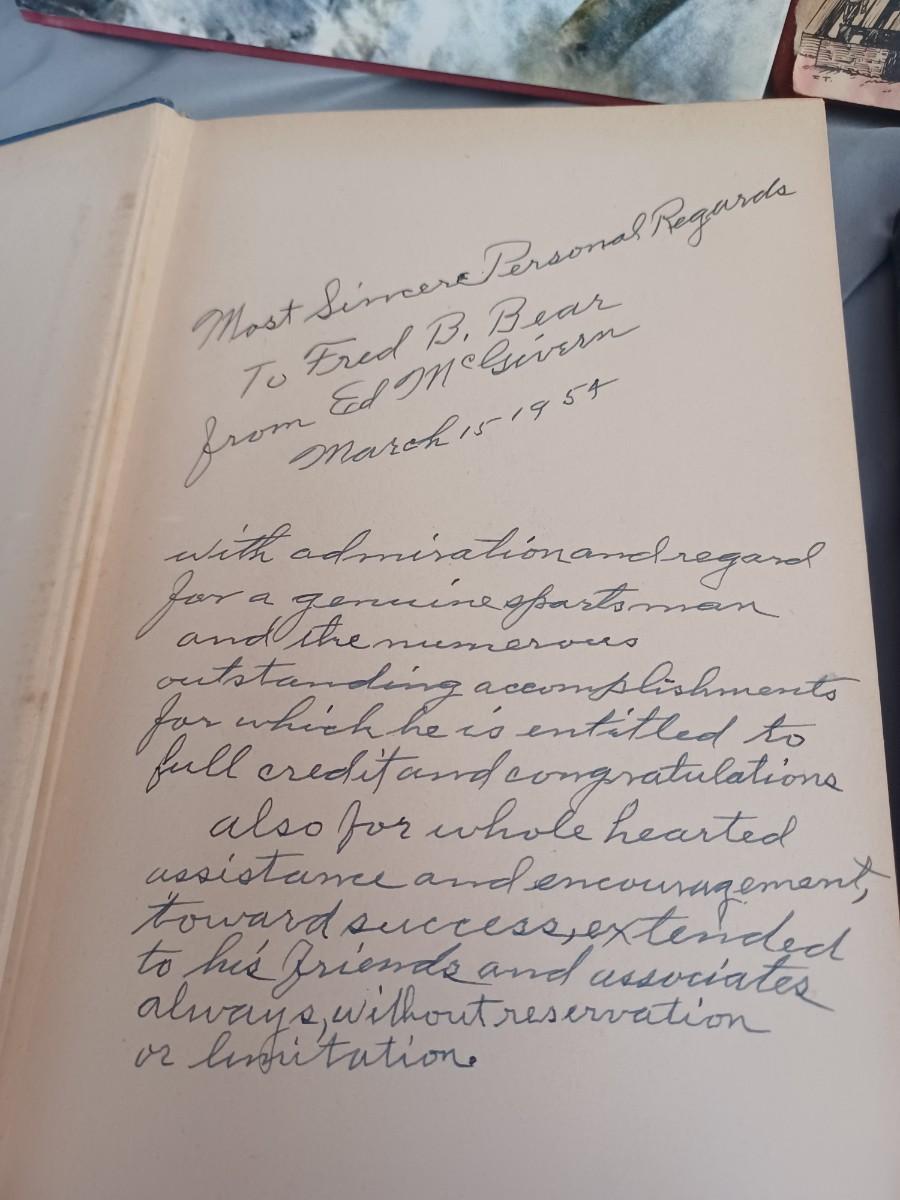 Most Sincere Personal Regards
To Fred B. Bear
from Ed McGivern
March 15 1954
with admiration and regard
for a genuine sportsman
and the numerous
outstanding accomplishments
for which he is entitled to
full credit and congratulations
also for whole hearted
assistance and encouragement,
toward success, extended
to his friends and associates
always, without reservation
or limitation.